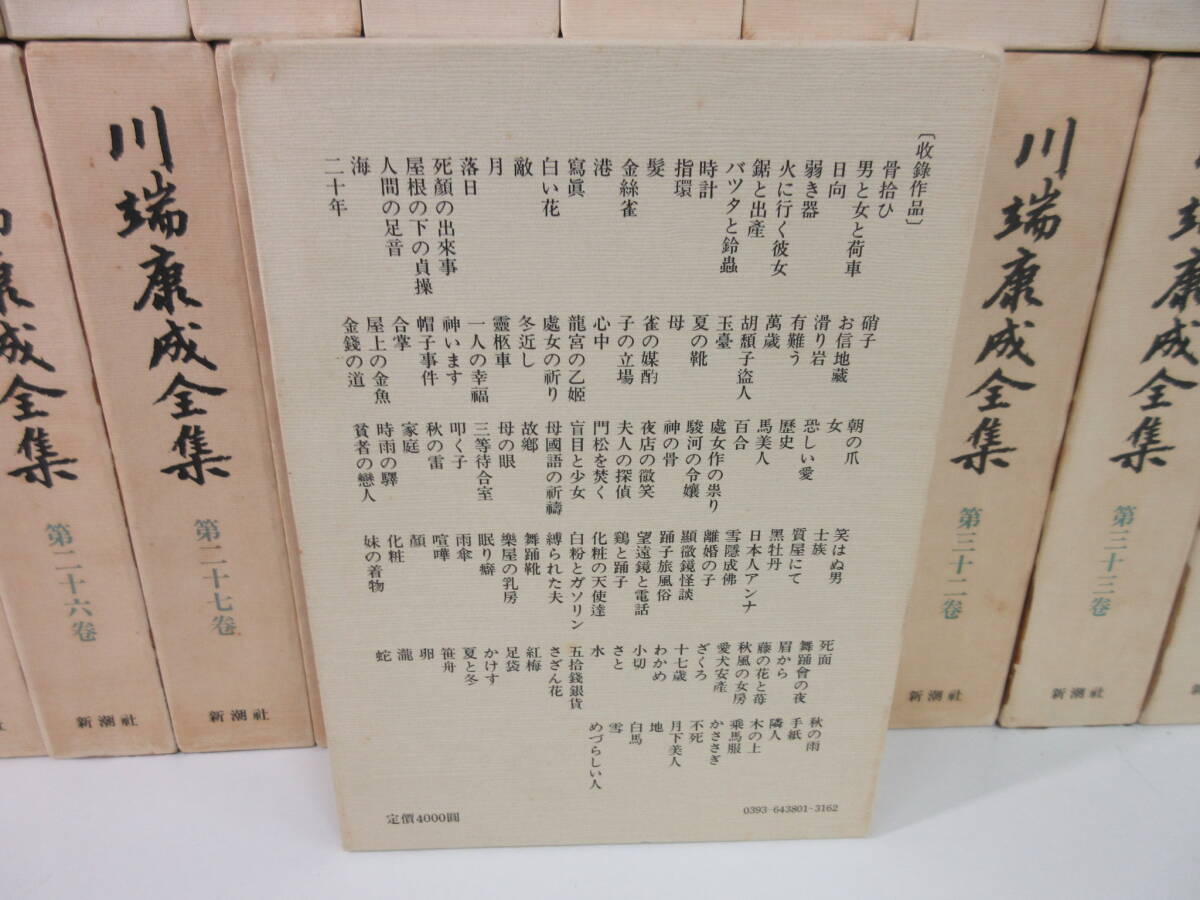 〔收錄作品〕
骨拾ひ
男と女と荷車
日向
弱き器
火に行く彼女
鋸と出產
バツタと鈴蟲
時計
指環
髮
金絲雀
港
寫眞
白い花
敵
月
落日
死顏の出來事
屋根の下の貞操
人間の足音
海
二十年
硝子
お信地藏
滑り岩
有難う
萬歲
胡頹子盜人
玉臺
夏の靴
母
雀の媒酌
子の立場
心中
龍宮の乙姬
處女の祈り
冬近し
靈柩車
一人の幸福
神います
帽子事件
合掌
屋上の金魚
金錢の道
朝の爪
女
恐しい愛
歷史
馬美人
百合
處女作の祟り
駿河の令孃
神の骨
夜店の微笑
夫人の探偵
門松を焚く
盲目と少女
母國語の祈禱
故鄕
母の眼
三等待合室
叩く子
秋の雷
家庭
時雨の驛
貧者の戀人
笑はぬ男
士族
質屋にて
黑牡丹
日本人アンナ
雪隱成佛
離婚の子
顯微鏡怪談
踊子旅風俗
望遠鏡と電話
鷄と踊子
化粧の天使達
白粉とガソリン
縛られた夫
舞踊靴
樂屋の乳房
眠り癖
雨傘
喧嘩
顏
化粧
妹の着物
死面
舞踊會の夜
眉から
藤の花と苺
秋風の女房
愛犬安產
ざくろ
十七歲
わかめ
小切
さと
水
五拾錢銀貨
さざん花
紅梅
足袋
かけす
夏と冬
笹舟
卵
瀧
蛇
秋の雨
手紙
隣人
木の上
乘馬服
かささぎ
不死
月下美人
地
白馬
雪
めづらしい人
定價4000圓
0393-643801-3162
川端康成全集
第三十三卷
新潮社
川端康成全集
第三十二卷
新潮社
川端康成全集
第二十七卷
新潮社
第二十六卷
新潮社